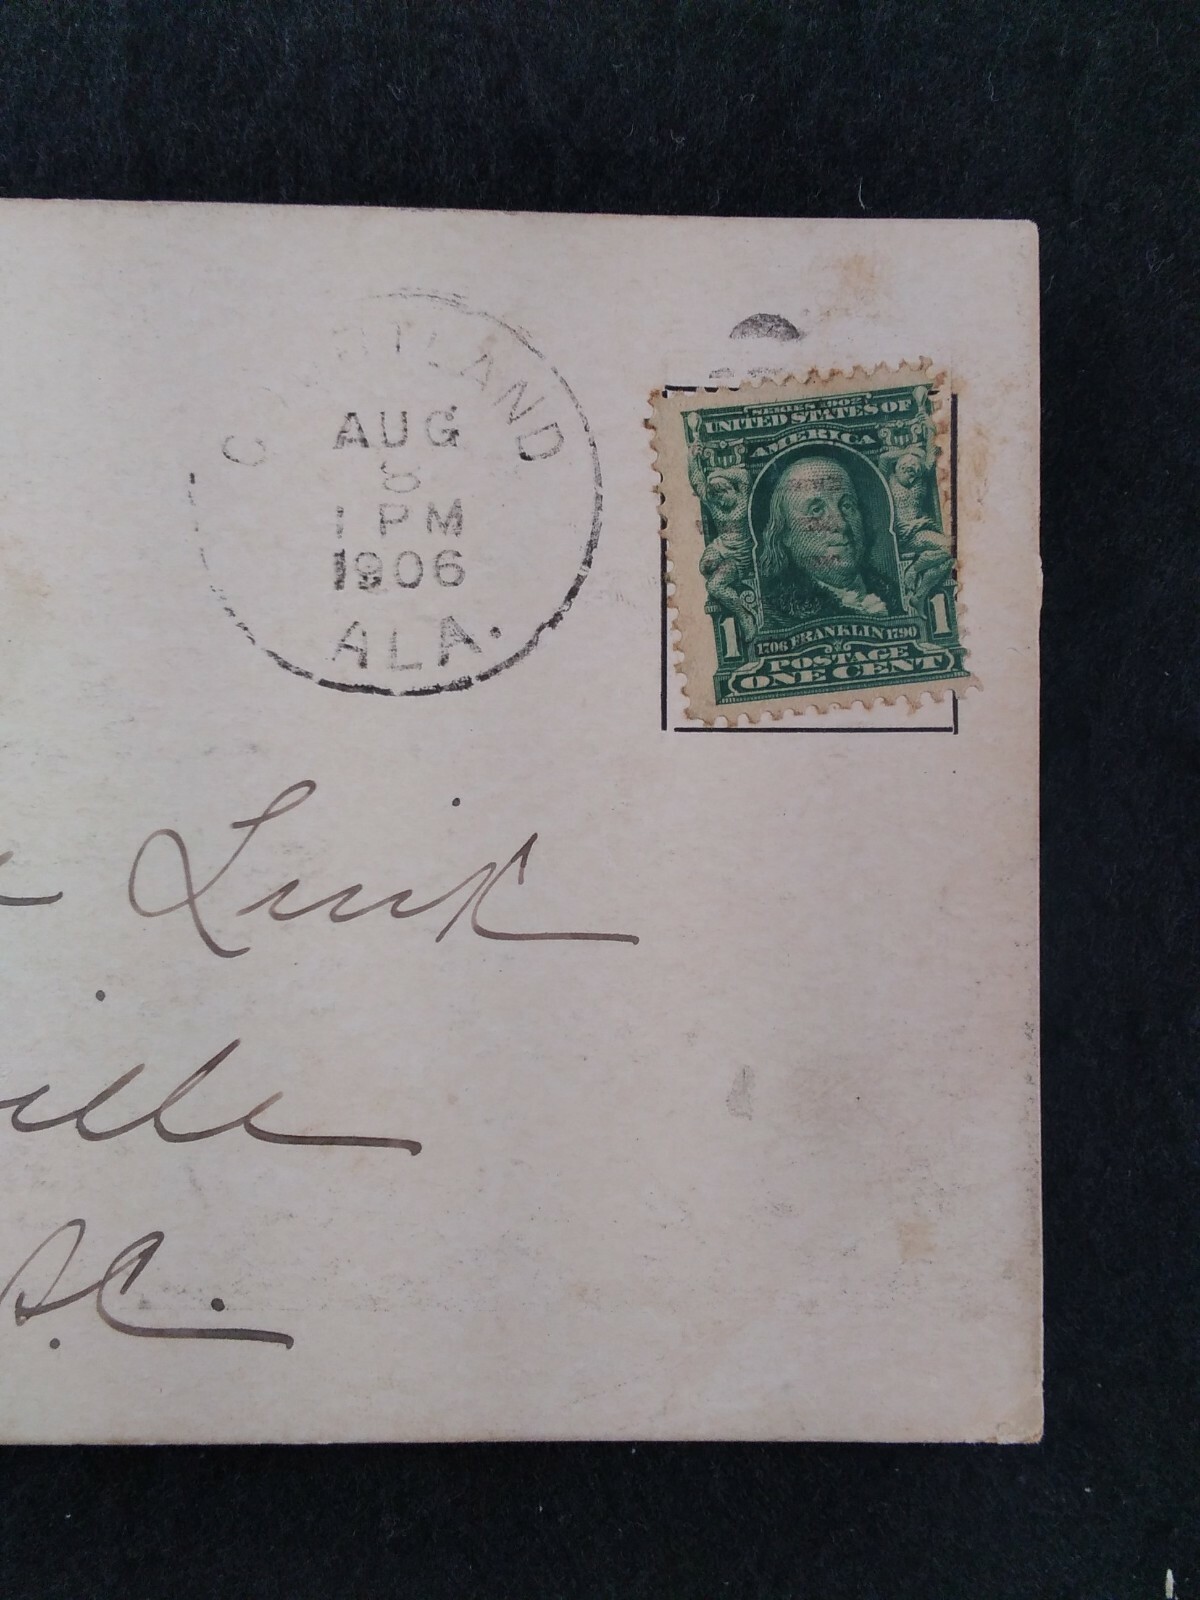 AUG
8
1 PM
1906
ALA.
SERIES 1902
UNITED STATES OF
AMERICA
1 1706 FRANKLIN 1790 1
POSTAGE
ONE CENT
Link
ille
S.C.